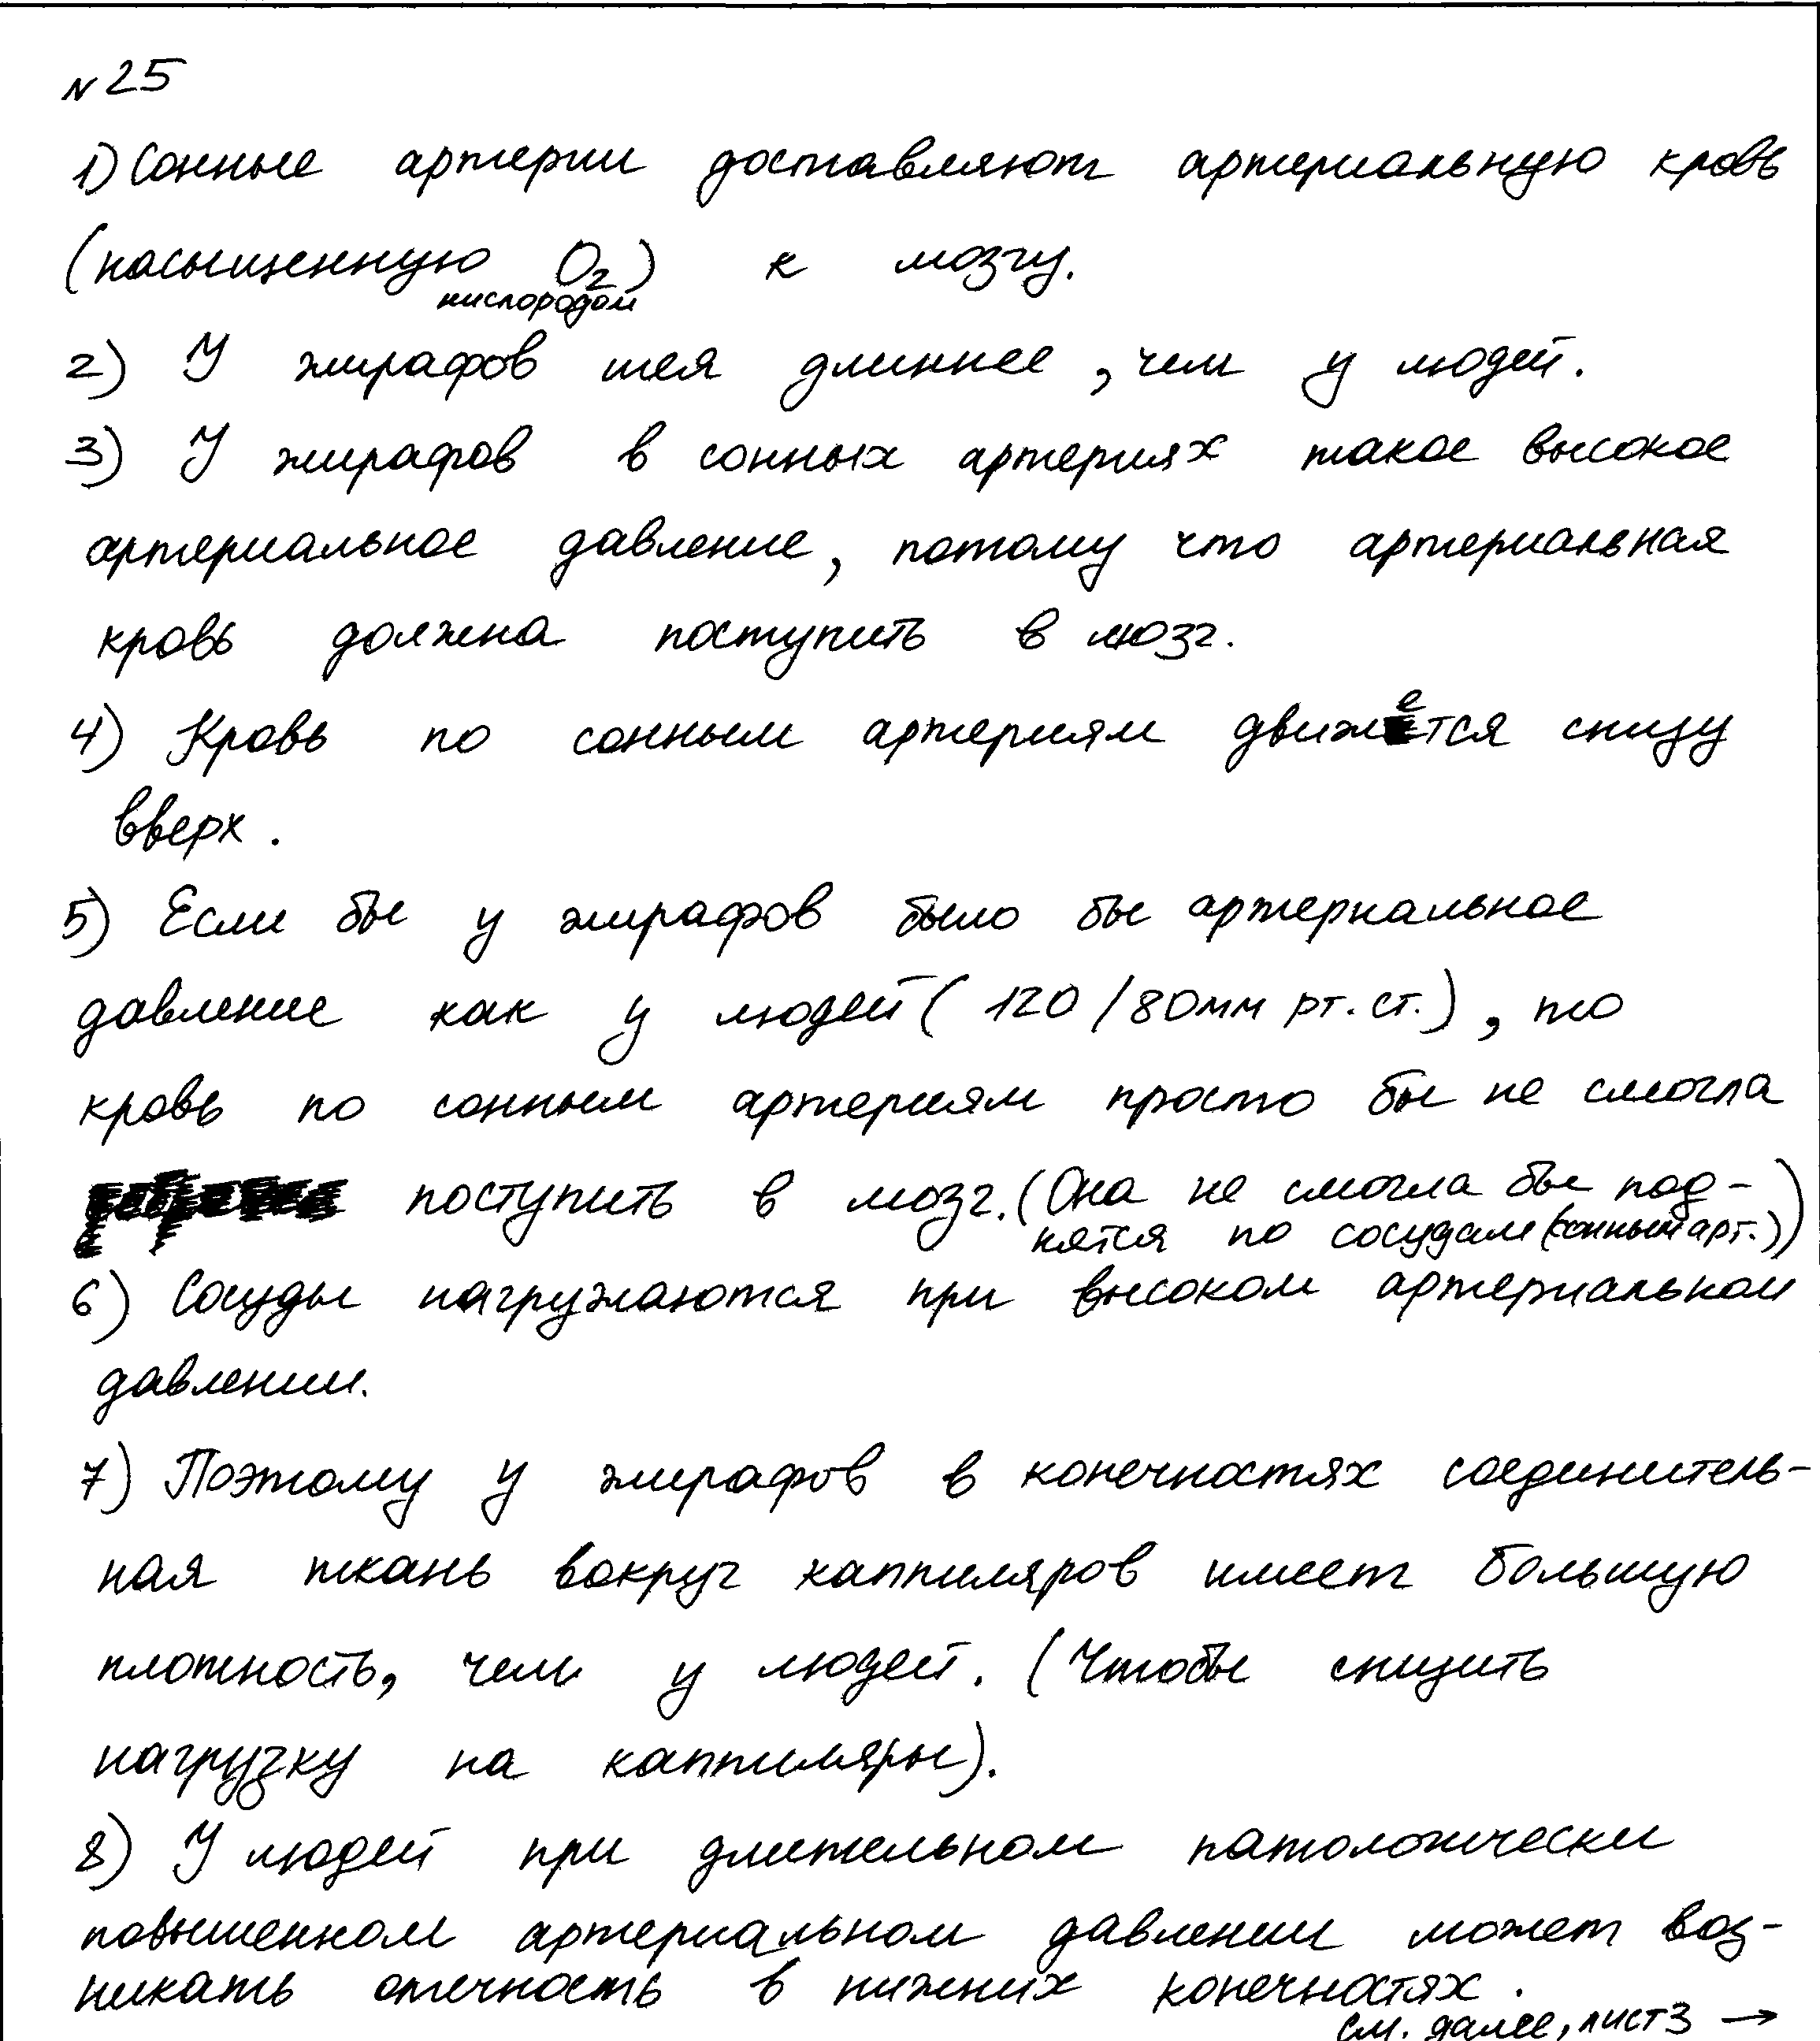 №25
1) Сонные артерии доставляют артериальную кровь
(насыщенную O₂) к мозгу.
кислородом
2) У жирафов шея длиннее, чем у людей.
3) У жирафов в сонных артериях такое высокое
артериальное давление, потому что артериальная
кровь должна поступить в мозг.
4) Кровь по сонным артериям движется снизу
вверх.
5) Если бы у жирафов было бы артериальное
давление как у людей (120/80мм рт. ст.), то
кровь по сонным артериям просто бы не смогла
поступить в мозг. (Она не смогла бы под-
нятся по сосудам (сонным арт.))
6) Сосуды нагружаются при высоком артериальном
давлении.
7) Поэтому у жирафов в конечностях соединитель-
ная ткань вокруг каппиляров имеет большую
плотность, чем у людей. (Чтобы снизить
нагрузку на каппиляры).
8) У людей при длительном патологически
повышенном артериальном давлении может воз-
никать отечность в нижних конечностях.
см. далее, лист 3 →